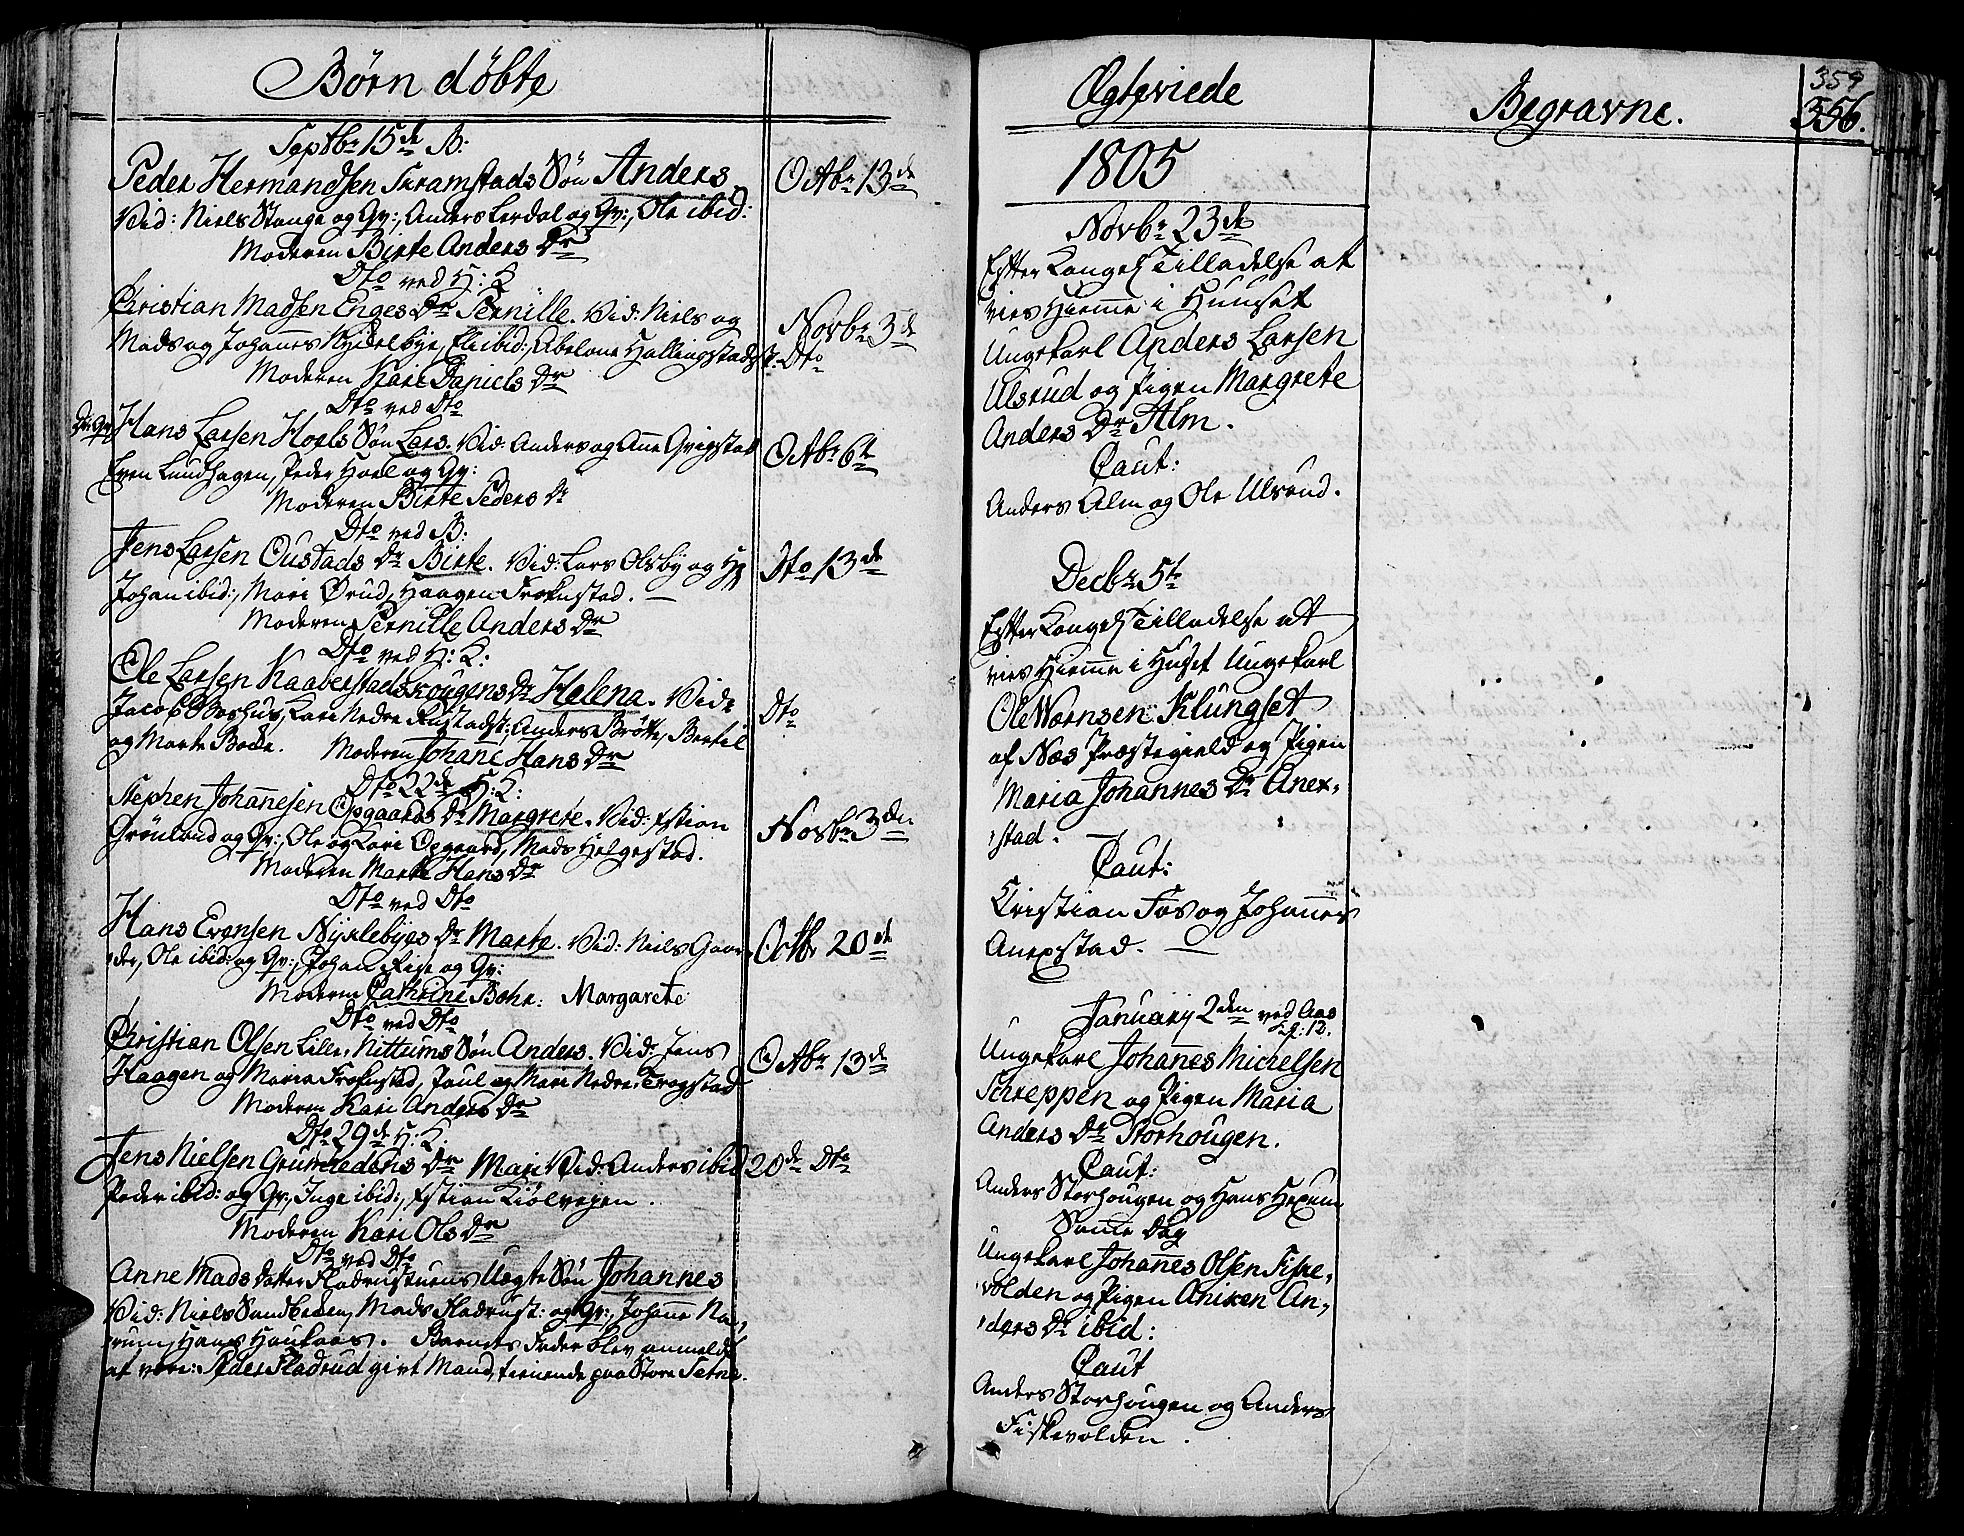 Børn døbte
Septbr 15de B:
Peder Hermandsen Skramstads Søn Anders
Octbr 13de
Vid: Niels Stange og Gv:, Anders Lerdal og Gv:, Ole ibid:
Moderen Birte Anders Dr
Dto ved H: K
Christian Madsen Enges Dr Pernille. Vid: Niels og
Novbr 3de
Mads og Johannes Kydelbye, Eli ibid:, Abelone Hallingstadst:
Dto
Moderen Kari Daniels Dr
Dto ved Dto
Hans Larsen Hoels Søn Lars. Vid: Anders og Anne Gvigstad
Octbr 6te
Even Lundhagen, Peder Hoel og Gv:
Moderen Birte Peders Dr
Dto ved B:
Jens Larsen Oustads Dr Birte. Vid: Lars Olsby og
Dto 13de
Johan ibid:, Mari Ørud, Haagen Frognstad.
Moderen Pernille Anders Dr
Dto ved H: K:
Ole Larsen Kaaberstadskougens Dr Helena. Vid:
Dto
Jacob Boshus, Kari Nedre Rustadst:, Anders Brøtte, Bertil
og Marte Bolle. Moderen Johane Hans Dr
Dto 22de H: K:
Stephen Johannesen Opgaards Dr Margrete. Vid: Estian
Novbr 3den
Grønlund og Gv:, Ole og Kari Opgaard, Mads Helgestad.
Moderen Marte Hans Dr
Dto ved Dto
Hans Evensen Nyklebyes Dr Marte. Vid: Niels Gaar-
Octbr 20de
der, Ole ibid: og Gv:, Johan Rise og Gv:
Moderen Cathrine Bohr: Margarete
Dto ved Dto
Christian Olsen Lille-Nittums Søn Anders. Vid: Jens
Octbr 13de
Haagen og Maria Frognstad, Paul og Mari Nedre-Trogstad
Moderen Kari Anders Dr
Dto 29de H: K.
Jens Nielsen Grumredens Dr Mari Vid: Anders ibid
20de Dto
Peder ibid: og Gv:, Inge ibid:, Estian Kiølvejen.
Moderen Kari Ols Dr
Dto ved Dto
Anne Mads Datter Fladrustuens Uægte Søn Johannes
Vid: Niels Sandbeden, Mads Fladrust: og Gv:, Johanne Na-
rum, Hans Haukaas. Barnets Fader blev anmeldt
at være: Peder Fladrud givt Mand, tienende paa Store Setne.
Ægteviede
1805
Novbr 23de
Efter Kongel Tilladelse at
vies Hiemme i Huuset
Ungekarl Anders Larsen
Ulsrud og Pigen Margrete
Anders Dr Alm.
Caut:
Anders Alm og Ole Ulsrud.
Decbr 5te
Efter Kongel Tilladelse at
vies Hiemme i Huset Ungekarl
Ole Wærnsen Klungset
af Næs Præstegield og Pigen
Maria Johannes Dr Anex-
stad.
Caut:
Kristian Fos og Johannes
Anexstad.
January 2den ved Aas
Ungekarl Johannes Michelsen
Schreppen og Pigen Maria
Anders Dr Storhougen.
Caut:
Anders Storhougen og Hans Hexum
Samme Dag
Ungekarl Johannes Olsen Fiske-
volden og Pigen Aniken An-
ders Dr ibid:
Caut
Anders Storhougen og Anders
Fiskevolden.
Begravne.
359
356.